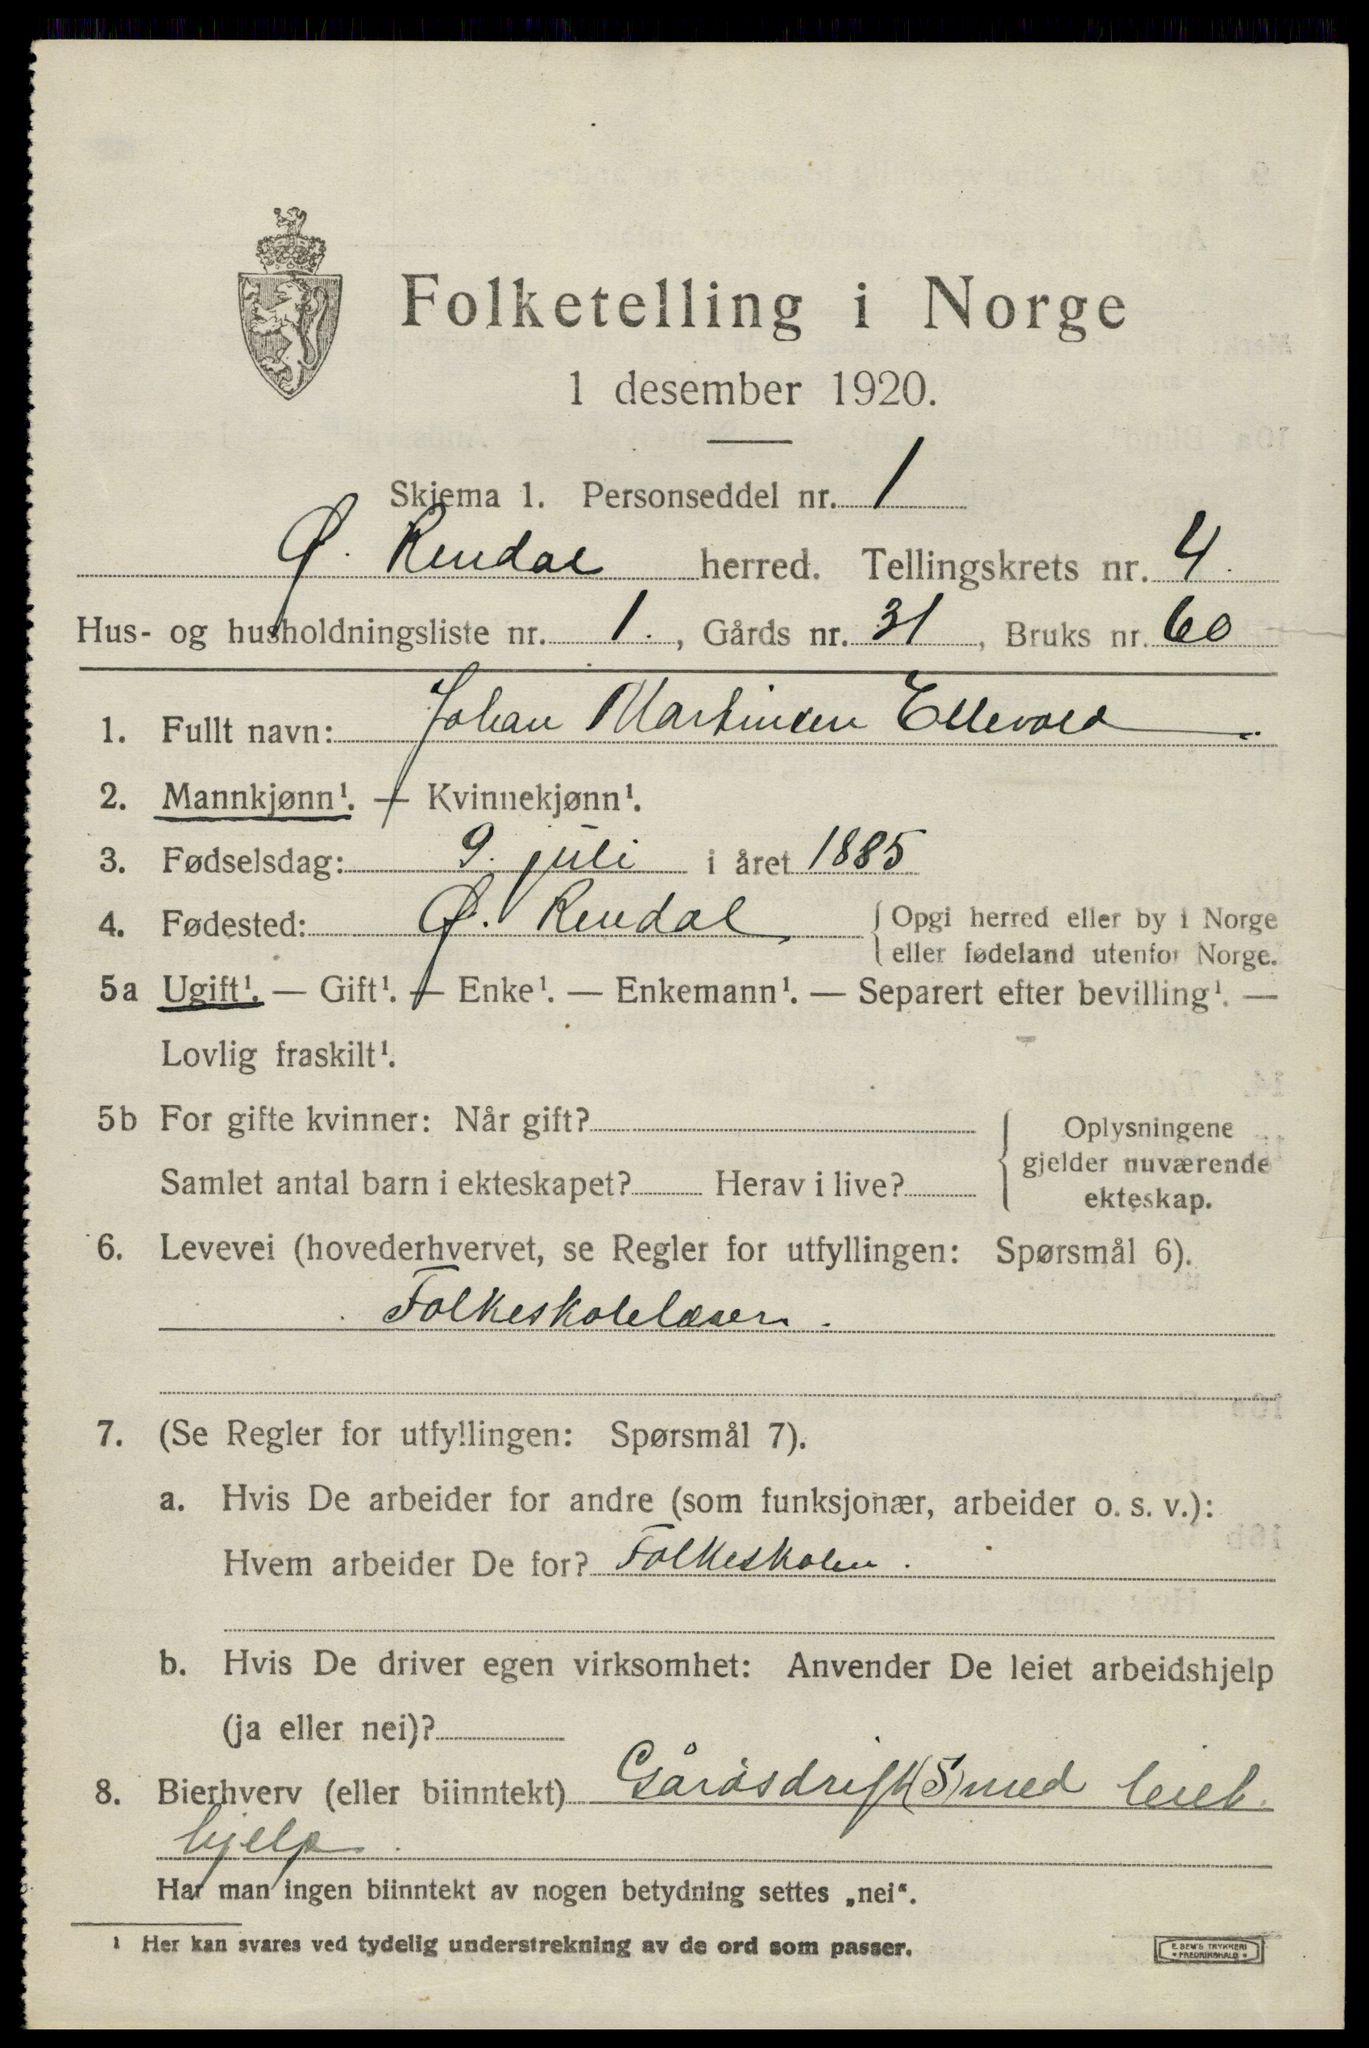 Folketelling i Norge
1 desember 1920.
Skjema 1. Personseddel nr. 1
Ø. Rendal herred. Tellingskrets nr. 4.
Hus- og husholdningsliste nr. 1., Gårds nr. 31, Bruks nr. 60
1. Fullt navn: Johan Martinsen Ellevold.
2. Mannkjønn¹. — Kvinnekjønn¹.
3. Fødselsdag: 9. juli i året 1885
4. Fødested: Ø. Rendal { Opgi herred eller by i Norge
eller fødeland utenfor Norge.
5a Ugift¹. — Gift¹. — Enke¹. — Enkemann¹. — Separert efter bevilling¹. —
Lovlig fraskilt¹.
5b For gifte kvinner: Når gift? { Oplysningene
gjelder nuværende
Samlet antal barn i ekteskapet? Herav i live?
ekteskap.
6. Levevei (hovederhvervet, se Regler for utfyllingen: Spørsmål 6).
Folkeskolelærer.
7. (Se Regler for utfyllingen: Spørsmål 7).
a. Hvis De arbeider for andre (som funksjonær, arbeider o. s. v.):
Hvem arbeider De for? Folkeskolen.
b. Hvis De driver egen virksomhet: Anvender De leiet arbeidshjelp
(ja eller nei)?
8. Bierhverv (eller biinntekt) Gårdsdrift (S) med leiet
hjelp.
Har man ingen biinntekt av nogen betydning settes „nei“.
¹ Her kan svares ved tydelig understrekning av de ord som passer.
E. SEM'S TRYKKERI
* FREDRIKSHALD *